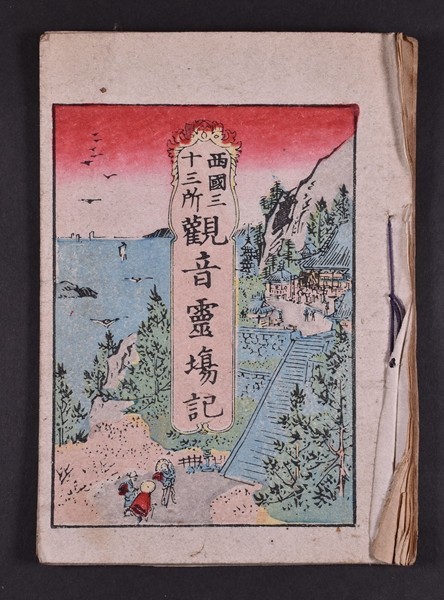 西國三
十三所
觀音靈塲記